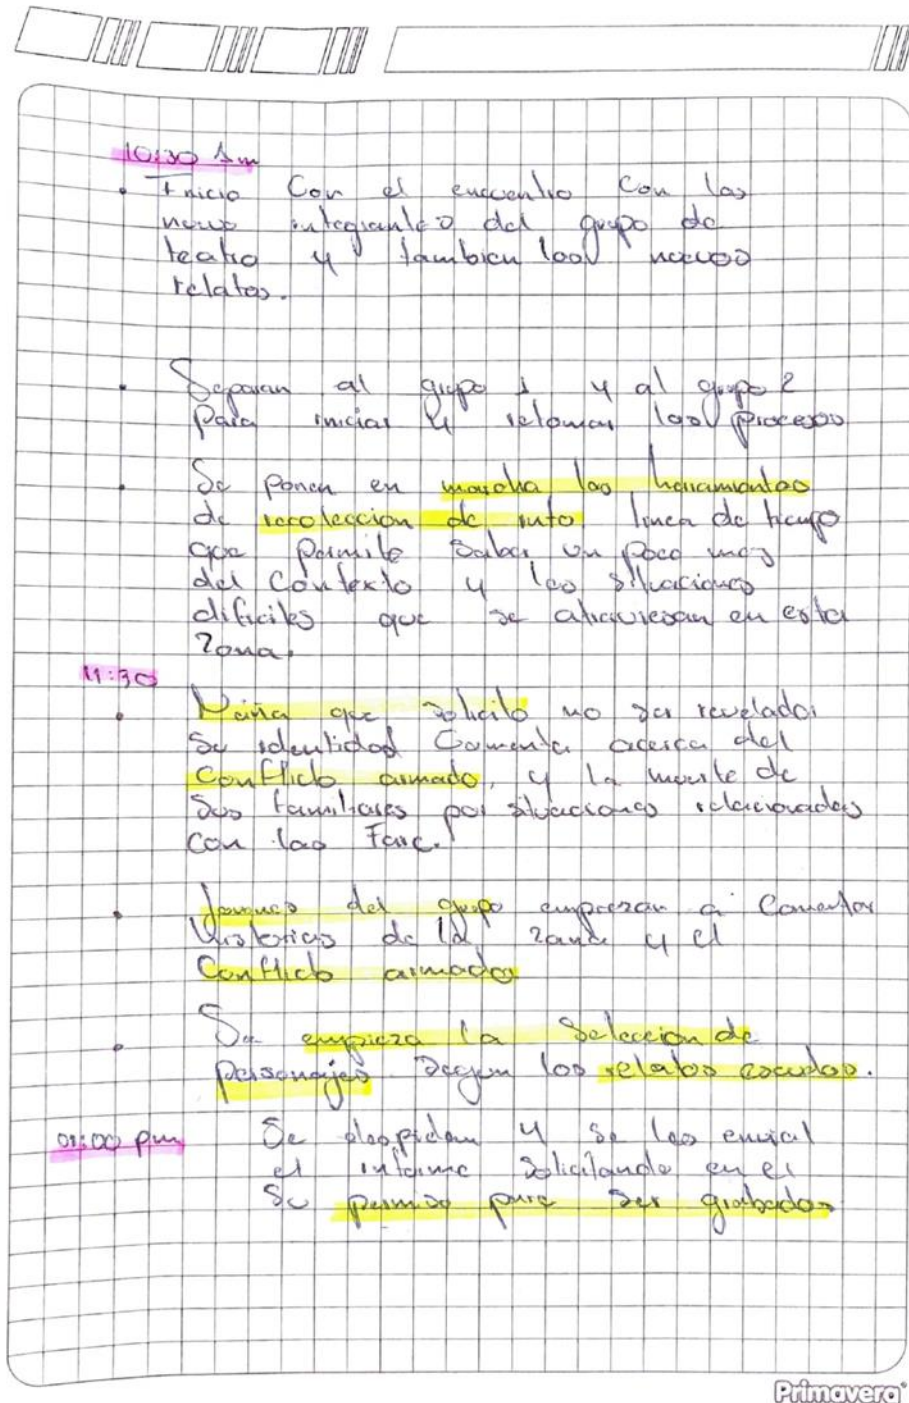 10:30 Am
• Inicio Con el encuentro Con los
nuevo integrantes del grupo de
teatro y tambien los nuevos
relatos.
• Separan al grupo 1 y al grupo 2
Para iniciar y retomar los procesos
• Se ponen en marcha las herramientas
de recoleccion de info linea de tiempo
que permite saber un poco mas
del Contexto y las situaciones
dificiles que se atraviesan en esta
Zona.
11:30
• que solicito no ser revelada
Su identidad Comenta acerca del
Conflicto armado, y la muerte de
Sus familiares por situaciones relacionadas
con las Farc.
• Jovenes del grupo empiezan a Comentar
historias de la zona y el
Conflicto armado
• Se empieza la Seleccion de
personajes segun los relatos
01:00 pm Se despiden y se les
el informe Solicitando en el
Su permiso para Ser grabados
Primavera